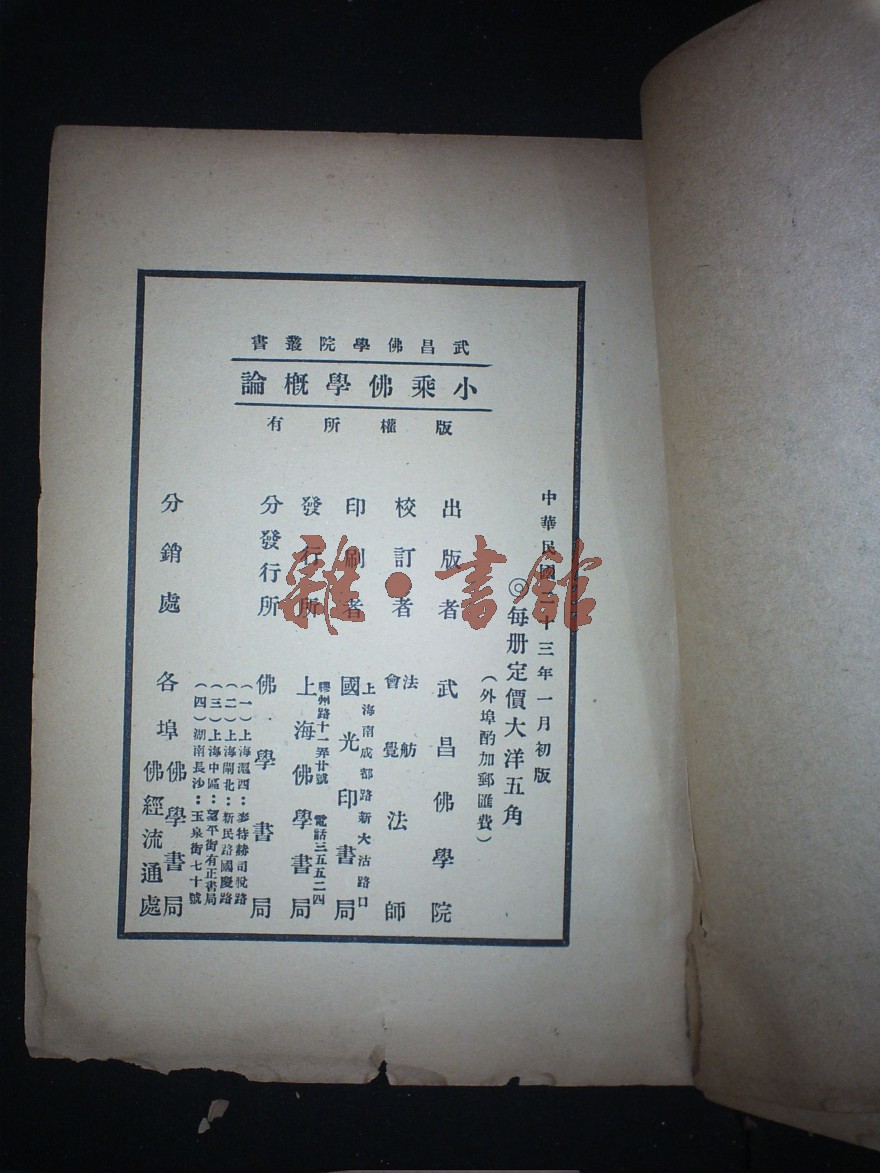 武昌佛學院叢書
小乘佛學概論
版權所有
中華民國二十三年一月初版
◎每册定價大洋五角
(外埠酌加郵匯費)
出版者 武昌佛學院
校訂者 法舫 會覺 法師
印刷者 國光印書局
上海南成都路新大沽路口
發行所 上海佛學書局
膠州路十一弄廿號 電話三五五二四
分發行所 佛學書局
(一)上海滬西:麥特赫司脫路
(二)上海閘北:新民路國慶路
(三)上海中區:望平街有正書局
(四)湖南長沙:玉泉街七十號
分銷處 各埠佛學書局
佛經流通處
雜·書館